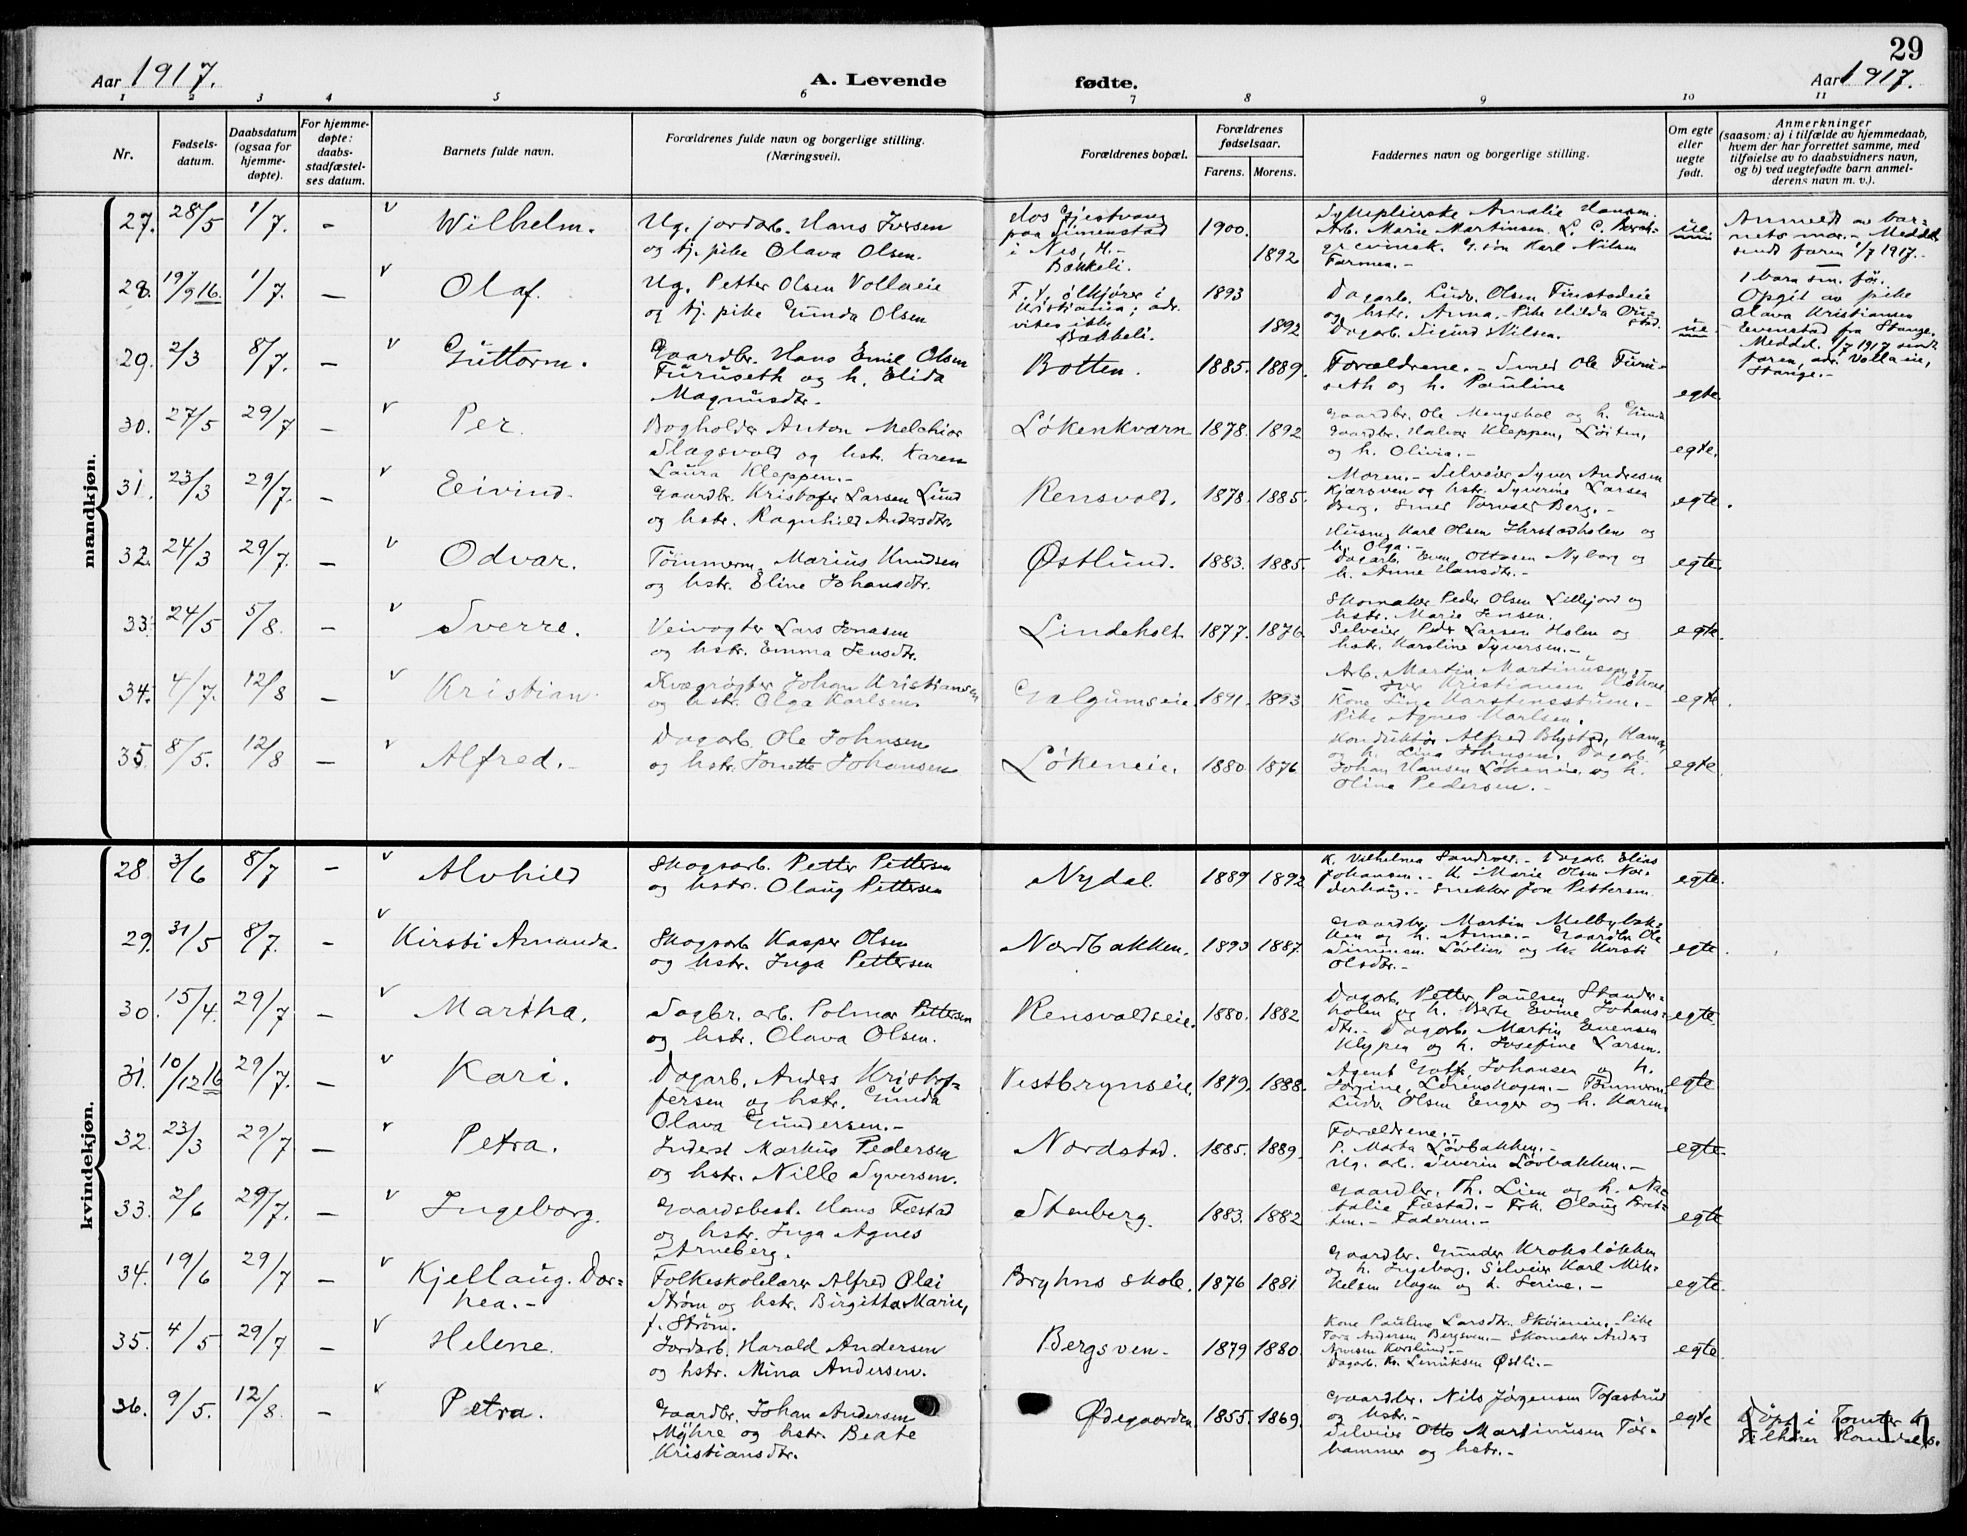 29
Aar 1917.
A. Levende fødte.
Aar 1917.
1 2 3 4 5 6 7 8 9 10 11
Nr.
Fødsels-
datum.
Daabsdatum
(ogsaa for
hjemme-
døpte).
For hjemme-
døpte:
daabs-
stadfæstel-
ses datum.
Barnets fulde navn.
Forældrenes fulde navn og borgerlige stilling.
(Næringsvei).
Forældrenes bopæl.
Forældrenes
fødselsaar.
Farens. Morens.
Faddernes navn og borgerlige stilling.
Om egte
eller
uegte
født.
Anmerkninger
(saasom: a) i tilfælde av hjemmedaab,
hvem der har forrettet samme, med
tilføielse av to daabsvidners navn,
og b) ved uegtefødte barn anmel-
derens navn m. v.).
mandkjøn.
27. 28/5 1/7. - v Wilhelm.
Ug. jordarb. Hans Iversen
og tj. pike Olava Olsen.
paa Simenstad
i Nes, H.-
Bækkeli.
1900. 1892
Arb. Marie Martinsen.
Karl Nilsen
ue.
Anmeldt av bar-
nets mor. - Meddel.
sendt faren 1/7 1917.-
28. 19/9 16. 1/7. - v Olaf.
Ug. Petter Olsen Vollaeie
og tj. pike Gunda Olsen
F. V. ølkjører i
Kristiania; adr.
vites ikke
Bækkeli.
1893 1892
Dagarb. Ludv. Olsen Finstadeie
og hstr. Anna. - Pike Hilda
Dagarb. Sigurd Nilsen.
ue.
1 barn sm. før.
Opgit av pike
Olava Kristiansen
Evenstad fra Stange.
Meddel. 1/7 1917 sendt
faren, adr. Vollaeie,
Stange.-
29. 2/3 8/7. - v Guttorm.
Gaardbr. Hans Emil Olsen
Furuseth og h. Elida
Magnusdtr.
Botten. 1885. 1889.
Forældrene. - Smed Ole Furu-
seth og h. Pauline
egte.
30. 27/5 29/7 - v Per.
Bogholder Anton Melchior
Slagsvold og hstr. Karen
Laura Kleppen.-
Løkenkværn 1878. 1892
Gaardbr. Ole Mengshol og h. Gunda
Gaardbr. Halvor Kleppen, Løiten,
og h. Olivia.-
egte.
31. 23/3 29/7. - v Eivind.
Gaardbr. Kristofer Larsen Lund
og hstr. Ragnhild Andersdtr.
Rensvold. 1878. 1885.
Moren. - Selveier Syver Andresen
Kjærsven og hstr. Syverine Larsen
Berg. Berg. -
egte.
32. 24/3 29/7. - v Odvar.
Tømmerm. Marius Knudsen
og hstr. Eline Johansdtr.
Østlund. 1883. 1885.
Husm. Karl Olsen Ihrstadholen og
h. Olga.-
Dagarb. Even Ottosen Nyborg og
h. Anne Hansdtr.-
egte.
33. 24/5 5/8. - v Sverre.
Veivogter Lars Jonasen
og hstr. Emma Jensdtr.
Lindeholt. 1877. 1876.
Skomaker Peder Olsen Lillejord og
hstr. Marie Jensen.
Selveier Peder Larsen Holen og
hstr. Karoline Syversen.-
egte.
34. 4/7. 12/8 - v Kristian.
Kvægrøgter Johan Kristiansen
og hstr. Olga Karlsen.
Galgumseie. 1891. 1893
Arb. Martin Martinusen, -
Iver Kristiansen
Kone Lina Karstensstuen. -
Pike Agnes Karlsen.
egte.
35. 8/5. 12/8 - v Alfred.-
Dagarb. Ole Johnsen
og hstr. Jonette Johansen
Løkeneie. 1880. 1876
Konduktør Alfred Blystad, Hamar,
og h. Lina Johnsen. Dagarb.
Johan Hansen Løkeneie og h.
Oline Pedersen.-
egte.
kvindekjøn.
28 3/6 8/7 - v Alvhild
Skogsarb. Petter Pettersen
og hstr. Olaug Pettersen
Nydal. 1889 1892
Dagarb. Elias
Johansen. - K. Marie Olsen Nor-
derhaug. - Snekker Jon Pettersen.
egte.
29. 31/5 8/7. - v Kirsti Amanda.
Skogsarb. Kasper Olsen
og hstr. Inga Pettersen
Nordbakken. 1893 1887.
Gaardbr. Martin Melbybak-
ken og h. Anna. - Gaardbr. Ole
Simensen Løvlien og h. Kersti
Olsdtr.-
egte.
30. 15/4. 29/7 - v Martha.
Sagbr. arb. Polmar Pettersen
og hstr. Olava Olsen.
Rensvoldseie. 1880. 1882
Dagarb. Petter Paulsen Stander-
holen og h. Berte Evine Johans-
dtr. - Dagarb. Martin Evensen
Klypen og h. Josefine Larsen.
egte.
31. 10/12 16 29/7. - v Kari.
Dagarb. Anders Kristof-
fersen og hstr. Gunda
Olava Gundersen.-
Vestbrynseie. 1879. 1888.
Agent Johansen og h.
Jørgine, Lørenshagen. - Tømmerm.
Ludv. Olsen Enger og h. Karen.
egte.
32. 23/3 29/7 - v Petra.
Inderst Markus Pedersen
og hstr. Nille Syversen.
Nordstad. 1885. 1889.
Forældrene.-
P. Marta Løvbakken.-
Ug. arb. Severin Løvbakken.-
egte.
33. 2/6 29/7. - v Ingeborg.
Gaardsbest. Hans Fæstad
og hstr. Inga Agnes
Arneberg.
Stenberg. 1883. 1882
Gaardbr. Th. Lien og h. Na-
talie Fæstad. - Frk. Olaug
Faderen.-
egte
34. 19/6 29/7 - v Kjellaug. Dor-
hea.-
Folkeskolelærer Alfred Olai
Strøm og hstr. Birgitta Marie,
f. Strøm.
Bryhns skole. 1876 1881
Gaardbr. Gunder Kroksløkken
og h. Ingeborg. Selveier Karl Mik-
kelsen Hagen og h. Serine.-
egte.
35. 4/5 29/7 - v Helene.
Jordarb. Harald Andersen
og hstr. Mina Andersen.
Bergsven- 1879 1880.
Kone Pauline Larsdtr. - Pike
Tora Andersen Bergsven. - Skomaker Anders
Dagarb. Kr. Lenriksen Østli.-
egte.
36. 9/5. 12/8. - v Petra.
Gaardbr. Johan Andersen
Myhre og hstr. Beate
Kristiansdtr.
Ødegaarden. 1855. 1869.
Gaardbr. Nils Jørgensen Tofastrud
og hstr.-
Selveier Otto Martinusen Tor-
hammer og hstr.-
egte
Døpt i Tomter k.
Tilhører Romedal